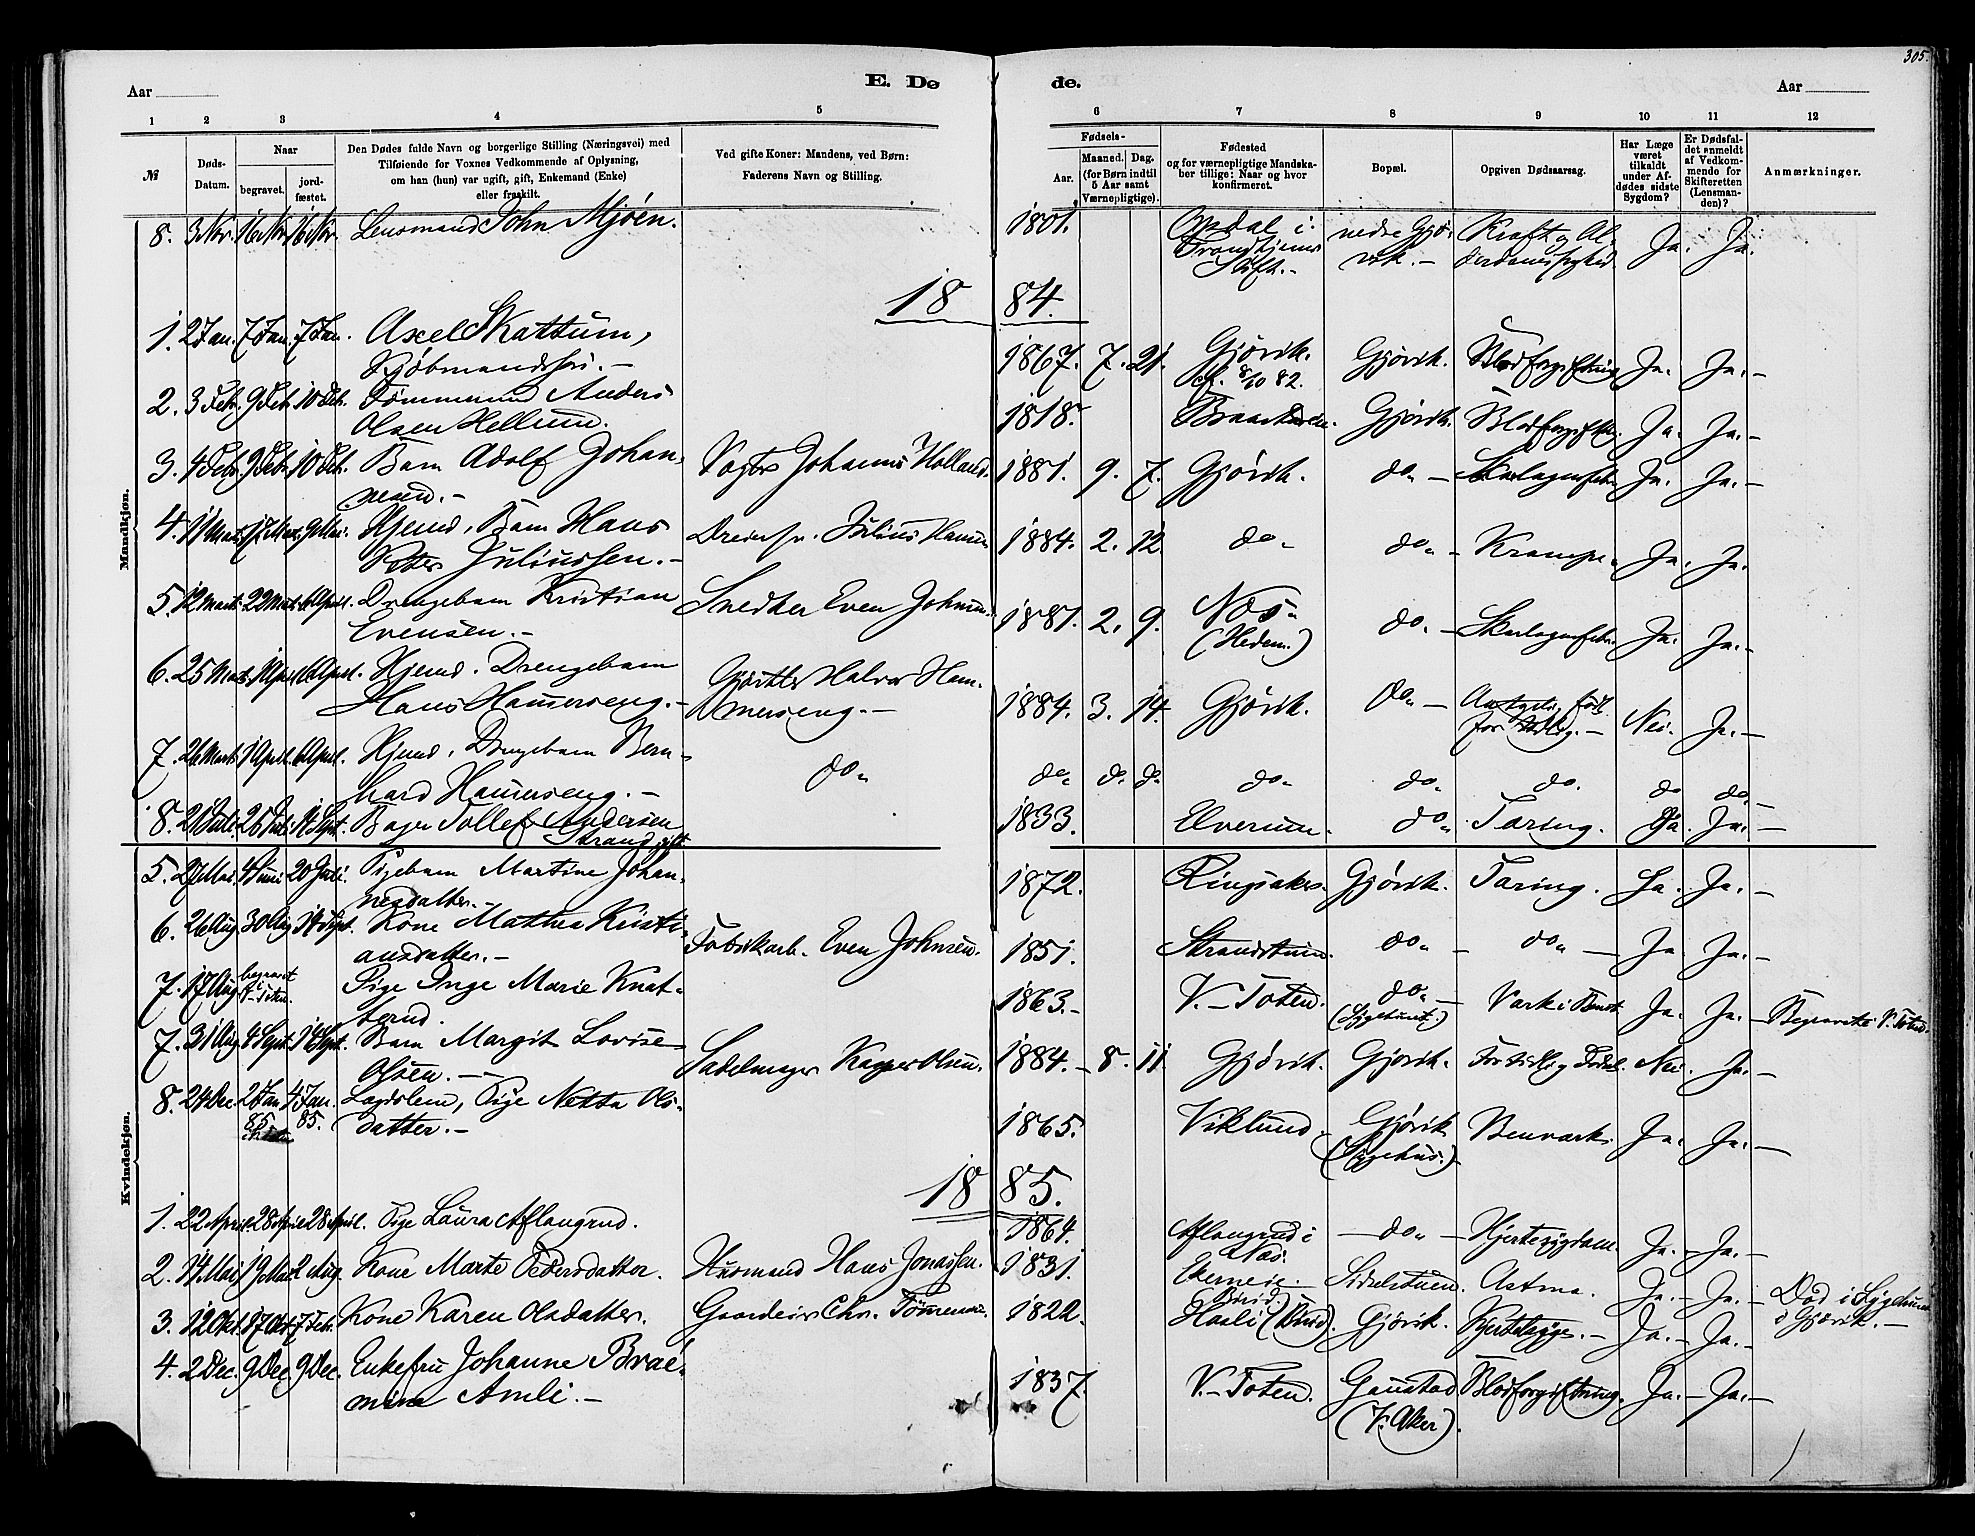 305.
Aar
E. Dø
de.
Aar
1 2 3 4 5 6 7 8 9 10 11 12
№
Døds-Datum.
Naar
begravet.
jord-fæstet.
Den Dødes fulde Navn og borgerlige Stilling (Næringsvei) med
Tilføiende for Voxnes Vedkommende af Oplysning,
om han (hun) var ugift, gift, Enkemand (Enke)
eller fraskilt.
Ved gifte Koner: Mandens, ved Børn:
Faderens Navn og Stilling.
Fødsels-
Aar.
Maaned. Dag.
(for Børn indtil
5 Aar samt
Værnepligtige).
Fødested
og for værnepligtige Mandska-
ber tillige: Naar og hvor
konfirmeret.
Bopæl.
Opgiven Dødsaarsag.
Har Læge
været
tilkaldt
under Af-
dødes sidste
Sygdom?
Er Dødsfal-
det anmeldt
af Vedkom-
mende for
Skifteretten
(Lensman-
den)?
Anmærkninger.
Mandkjøn.
8. 3 Nvr. 16 Nvr. 16 Nvr. Lensmand John Mjøen. 1801. Opdal i Trondhjems Stift.- nedre Gjøvik.- Kraft og Alderdomssvaghed Ja. Ja.
1884.
1. 2 Jan. 7 Jan. 7 Jan. Axel Skattum, Kjøbmandssøn.- 1867. 7. 21. Gjövik. cf. 8/10 82. Gjövik. Blodforgiftning Ja. Ja.-
2. 3 Febr. 9 Febr. 10 Febr. Tømmermand Anders Olsen Hellund. 1818. Gjövik. Blodforgiftn. Ja. Ja.-
3. 4 Febr. 9 Febr. 10 Febr. Barn Adolf Johannesen.- Vogter Johannes Holland. 1881. 9. 7. Gjövik. do.- Skarlagensfeber Ja. Ja.-
4. 11 Marts. 17 Marts. 9 Mai. Hjemd. Barn Hans Petter Juliussen.- Dreiersv. Julius Hansen 1884. 2. 12 do. do.- Krampe. Ja. Ja.
5. 12 Marts. 22 Marts. 6 April. Drengebarn Kristian Evensen.- Snedker Even Johnsen. 1881. 2. 9. Næs. (Hedem.) do.- Skarlagensfeber Ja. Ja.-
6. 25 Marts. 1 April. 6 April. Hjemd. Drengebarn Hans Hammerseng.- Gjørtler Halvor Hammerseng.- 1884. 3. 14. Gjövik. do.- Antagelig født for tidlig.- Nei. Ja.-
7. 26 Marts. 1 April. 6 April. Hjemd. Drengebarn Bernhard Hammerseng.- do. do. do. do. do. do. do. do do.-
8. 21 Juli. 26 Juli. 14 Sept. Bager Tollef Andersen Strand, gift 1833. Elverum. do. Tæring. Ja. Ja.-
Kvindekjøn.
5. 27 Mai. 4 Juni 20 Juli. Pigebarn Martine Johannesdatter.- 1872. Ringsaker. Gjövik. Tæring. Ja. Ja.-
6. 26 Aug. 30 Aug. 14 Sept. Kone Mathea Kristiansdatter.- Fabrikarb. Even Johnsen. 1851. do.- do.- Ja Ja.-
7. 17 Aug begravet i V. Toten. Pige Inge Marie Knatterud. 1863.- V.-Toten. do.- (Sygehuset.) Værk i Brystet Ja. Ja.- Begravet i V. Toten
7. 31 Aug 4 Sept. 14 Sept. Barn Margit Lovise Olsen.- Sadelmager Kasper Olsen. 1884.- 8. 11 Gjövik. Gjövik. For tidlig Fødsel. Nei. Ja.-
8. 24 Dec. 2 Jan 85. 4 Jan. 85. Lægdslem, Pige Netta Olsdatter.- 1865. Viklund. Gjövik (Sygehus.) Benværk. Ja. Ja.-
1885.
1. 22 April. 28 April 28 April. Pige Laura Aflangrud. 1864. Aflangrud i Næs. -do.- Hjertesygdom. Ja.- Ja.-
2. 14 Mai 19 Mai 2 Aug. Kone Marte Pedersdatter. Husmand Hans Jonassen. 1831. Ekerneie. (Birid) Sidselstuen. Astma. Ja.- Ja.- Død i Sygehuset i Gjøvik.-
3. 12 Okt. 17 Okt. 7 Febr. Kone Karen Olsdatter. Gaardeier Chr. 1822. (Birid). Gjövik. Hjertesyge.- Ja.- Ja.-
4. 2 Dec. 9 Dec. 9 Dec. Enkefru Johanne Braemine Amli.- 1837. V.-Toten. Gaustad (V. Aker). Blodforgiftning. Ja.- Ja.-